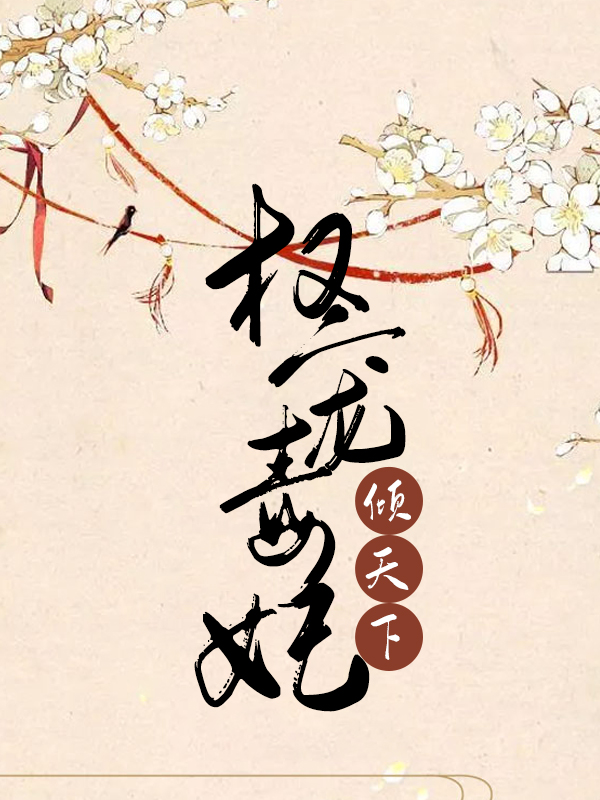 权宠毒妃
倾天下